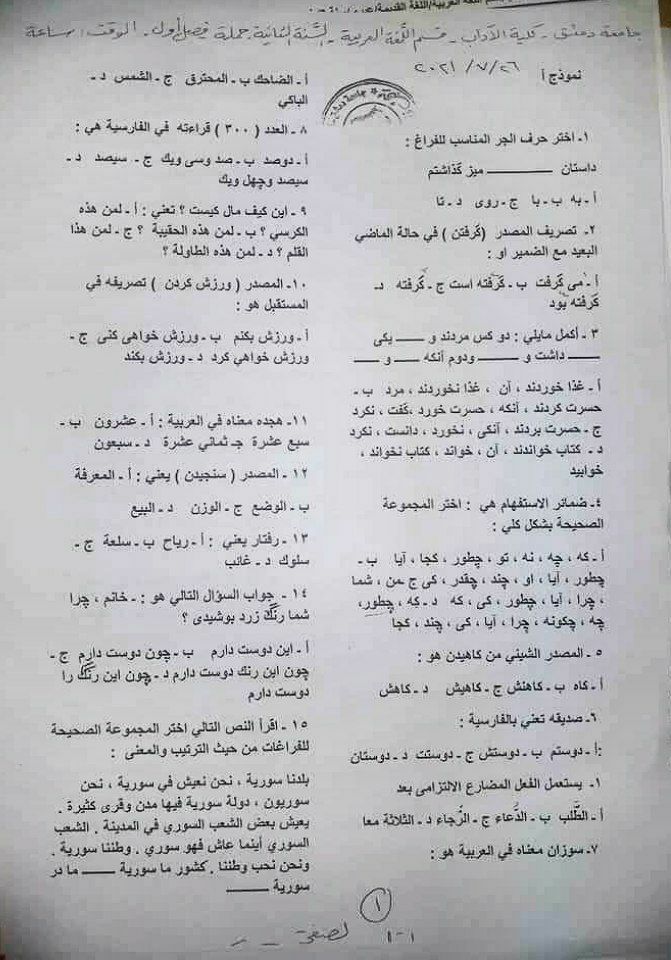 اللغة العربية/اللغة القديمة/
جامعة دمشق - كلية الآداب - قسم اللغة العربية - السنة الثانية حملة فصل أول - الوقت: ساعة
نموذج أ ٢٠٢١/٧/٢٦
١- اختر حرف الجر المناسب للفراغ :
داستان ــــــــ ميز گذاشتم
أ- به ب- با ج- روى د- تا
٢- تصريف المصدر (گرفتن) في حالة الماضي
البعيد مع الضمير او :
أ- مى گرفت ب- گرفته است ج- گرفته د-
گرفته بود
٣- أكمل مايلي : دو كس مردند و ــــــ يكى
ــــــ داشت و ــــــ ودوم آنكه ــــــ و ــــــ
أ- غذا خوردند ، آن ، غذا نخوردند ، مرد ب-
حسرت كردند ، آنكه ، حسرت خورد ، گفت ، نكرد
ج- حسرت بردند ، آنكى ، نخورد ، دانست ، نكرد
د- كتاب خواندند ، آن ، خواند ، كتاب نخواند ،
خوابيد
٤- ضمائر الاستفهام هي : اختر المجموعة
الصحيحة بشكل كلي :
أ- كه ، چه ، نه ، تو ، چطور ، كجا ، آيا ب-
چطور ، آيا ، او ، چند ، چقدر ، كى ج- من ، شما
، چرا ، آيا ، چطور ، كى ، كه د- كه ، چطور،
چه ، چكونه ، چرا ، آيا ، كى ، چند ، كجا
٥- المصدر الشيني من كاهيدن هو :
أ- كاه ب- كاهنش ج- كاهيش د- كاهش
٦- صديقه تعني بالفارسية :
أ- دوستم ب- دوستش ج- دوستت د- دوستان:
١- يستعمل الفعل المضارع الالتزامى بعد
أ- الطَّلب ب- الدُّعاء ج- الرَّجاء د- الثلاثة معا
٧- سوزان معناه في العربية هو :
أ- الضاحك ب- المحترق ج- الشمس د-
الباكي
٨- العدد (٣٠٠) قراءته في الفارسية هي :
أ- دوصد ب- صد وسى ويك ج- سيصد د-
سيصد وچهل ويك
٩- اين كيف مال كيست ؟ تعني : أ- لمن هذه
الكرسي ؟ ب- لمن هذه الحقيبة ؟ ج- لمن هذا
القلم ؟ د- لمن هذه الطاولة ؟
١٠- المصدر ( ورزش كردن ) تصريفه في
المستقبل هو :
أ- ورزش بكنم ب- ورزش خواهى كنى ج-
ورزش خواهي كرد د- ورزش بكند
١١- هجده معناه في العربية : أ- عشرون ب-
سبع عشرة جـ ثماني عشرة د- سبعون
١٢- المصدر ( سنجيدن ) يعني : أ- المعرفة
ب- الوضع ج- الوزن د- البيع
١٣- رفتار يعني : أ- رياح ب- سلعة ج-
سلوك د- غائب
١٤- جواب السؤال التالي هو : - خانم ، چرا
شما رنگ زرد بوشيدى ؟
أ- اين دوست دارم ب- چون دوست دارم ج-
چون اين رنك دوست دارم د- چون اين رنگ را
دوست دارم
١٥- اقرأ النص التالي اختر المجموعة الصحيحة
للفراغات من حيث الترتيب والمعنى :
بلدنا سورية ، نحن نعيش في سورية ، نحن
سوريون ، دولة سورية فيها مدن وقرى كثيرة .
يعيش بعض الشعب السوري في المدينة . الشعب
السوري أينما عاش فهو سوري . وطننا سورية .
ونحن نحب وطننا . كشور ما سورية ــــــ ما در
سورية ــــــ
١